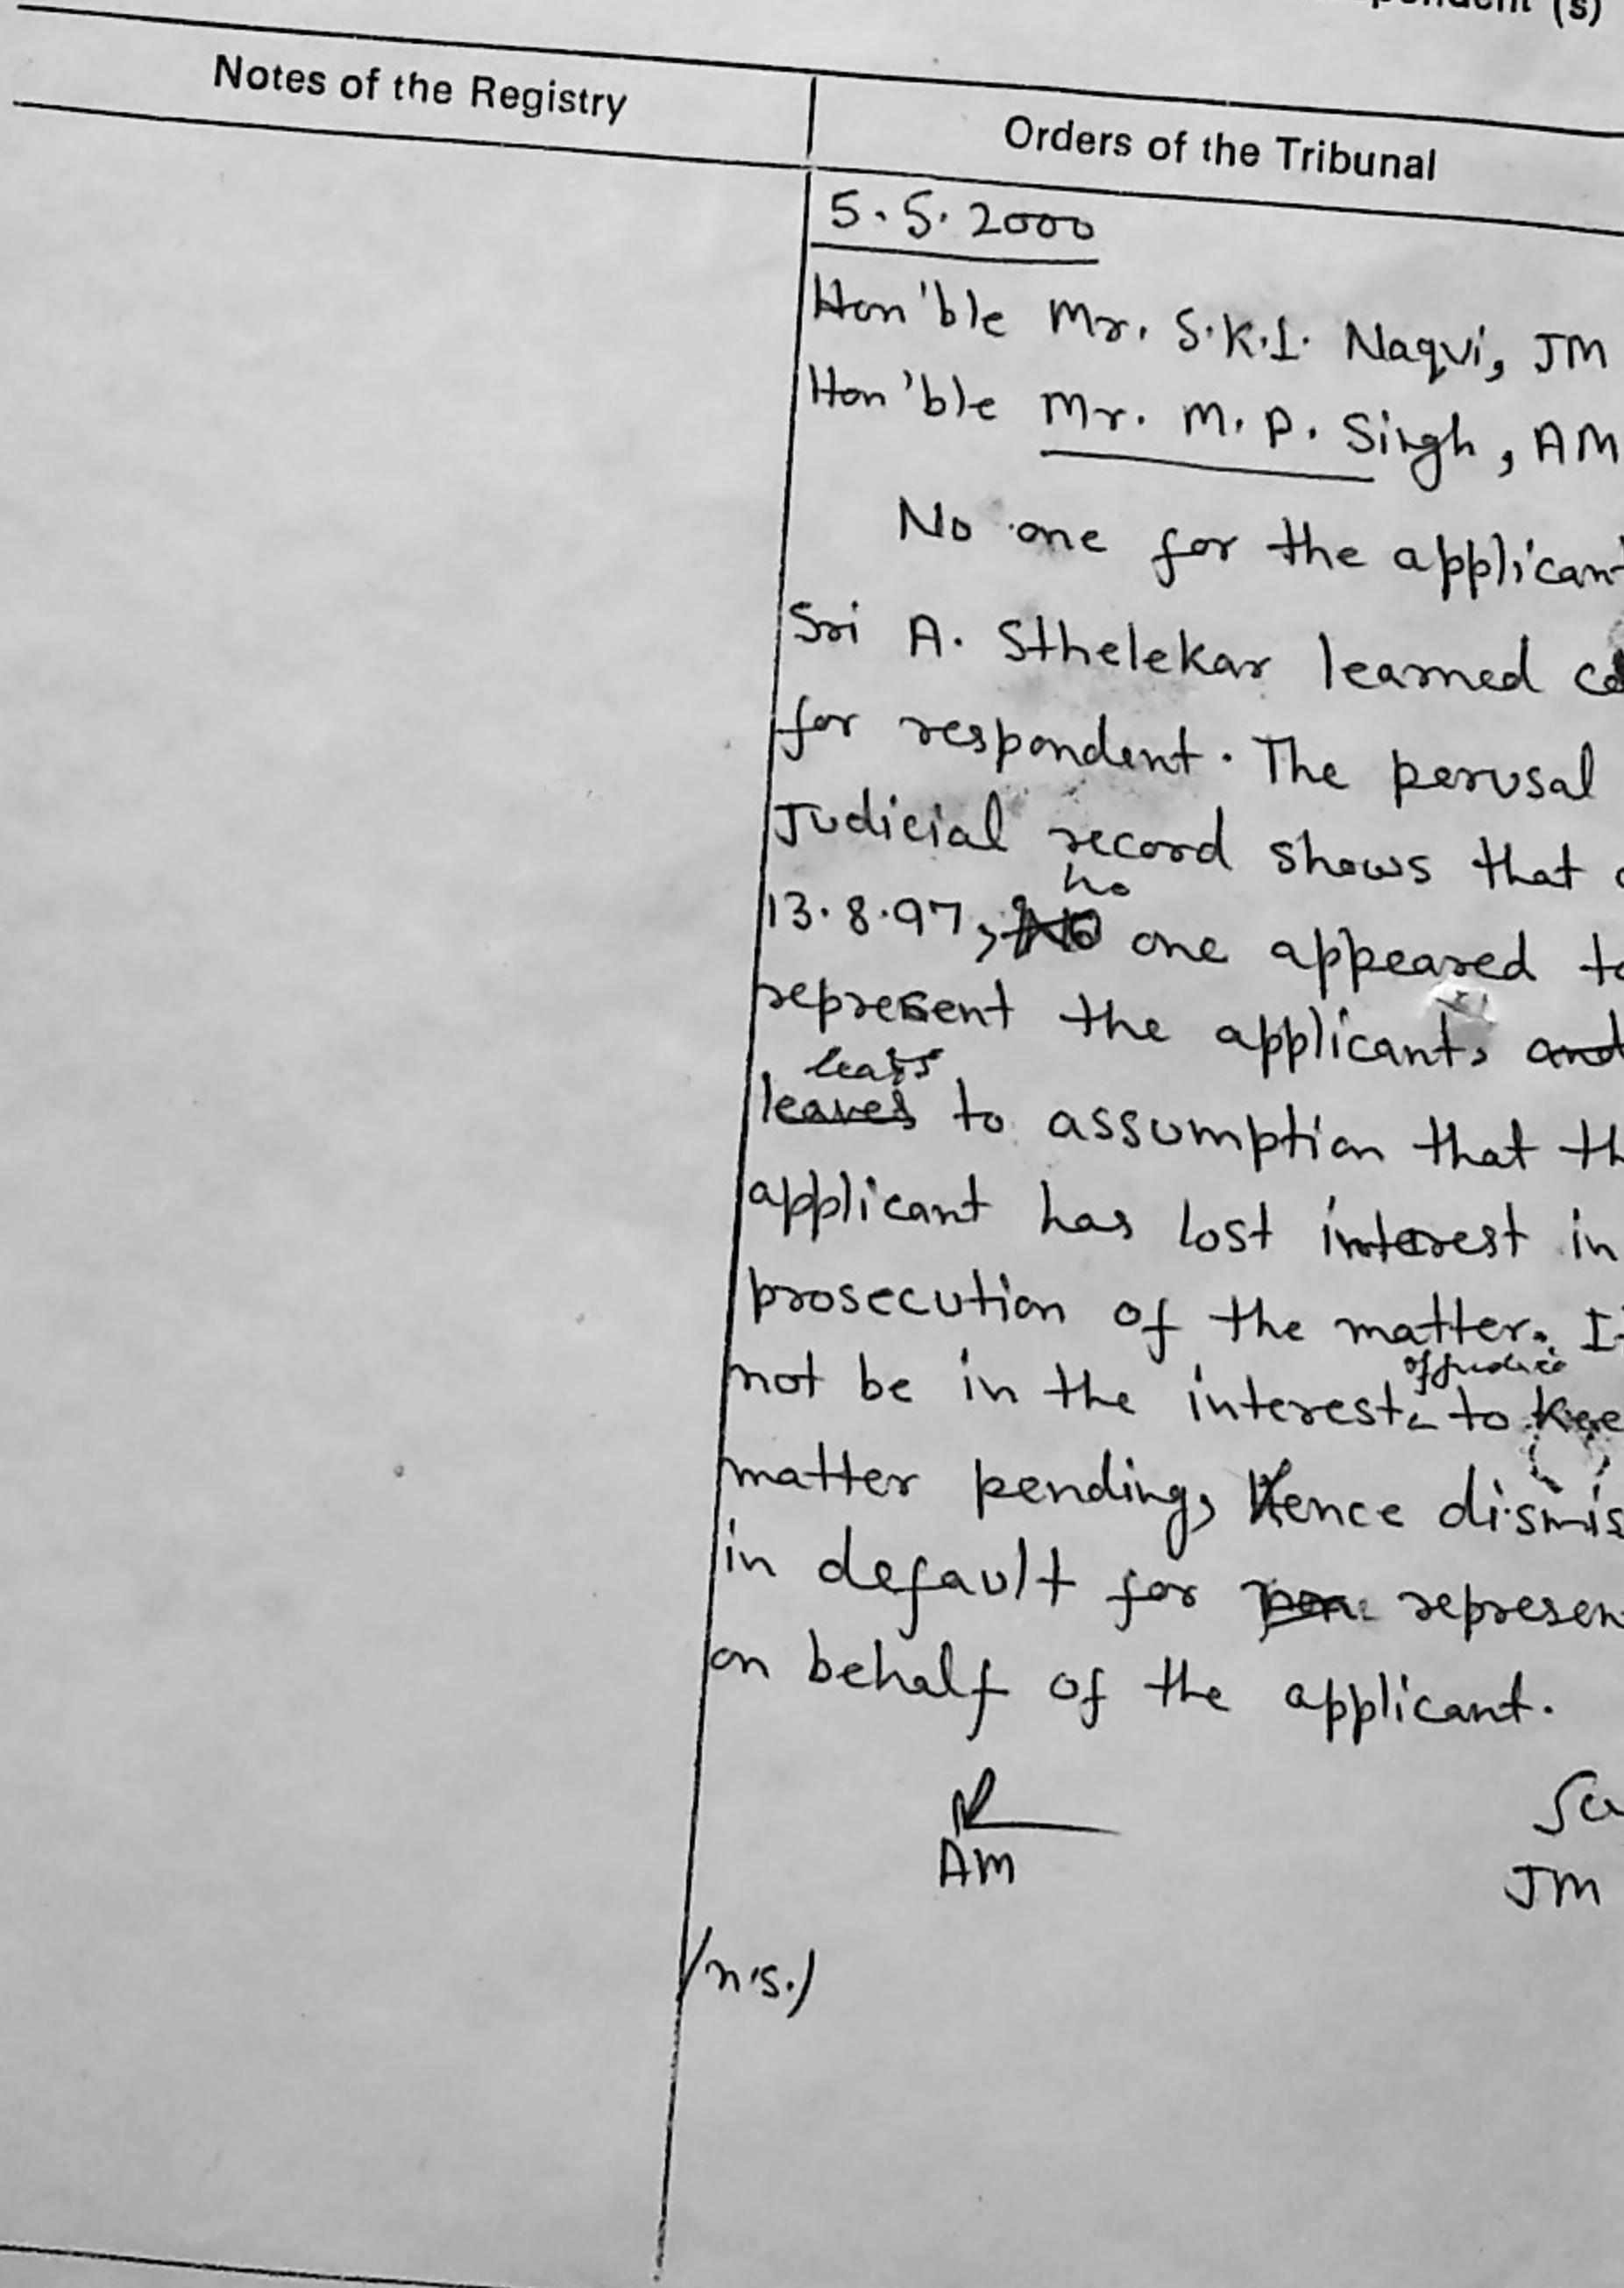 pondent (s)
Notes of the Registry
Orders of the Tribunal
5.5.2000
Hon'ble Mr. S.K.I. Naqvi, JM
Hon'ble Mr. M.P. Singh, AM
No one for the applicant
Sri A. Sthelekar learned co
for respondent. The perusal
Judicial record shows that
13.8.97, no one appeared to
represent the applicant, and
leads
leaves to assumption that th
applicant has lost interest in
prosecution of the matter. It
of justice
not be in the interest to kee
matter pending, Hence dismis
in default for non represen
on behalf of the applicant.
AM
JM
/n.s./